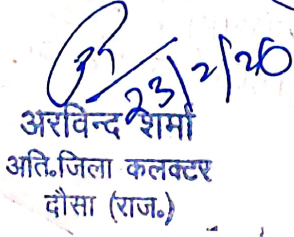 23/2/26
अरविन्द शर्मा
अति.जिला कलक्टर
दौसा (राज.)